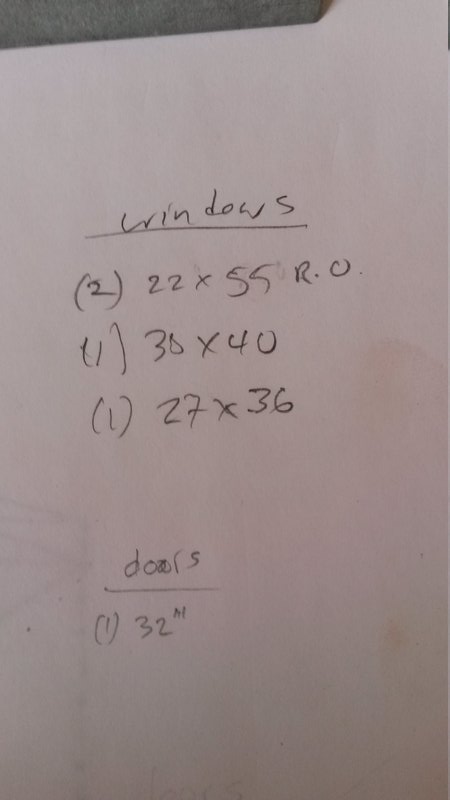 windows
(2) 22 x 55 R.O.
(1) 30 x 40
(1) 27 x 36
doors
(1) 32"